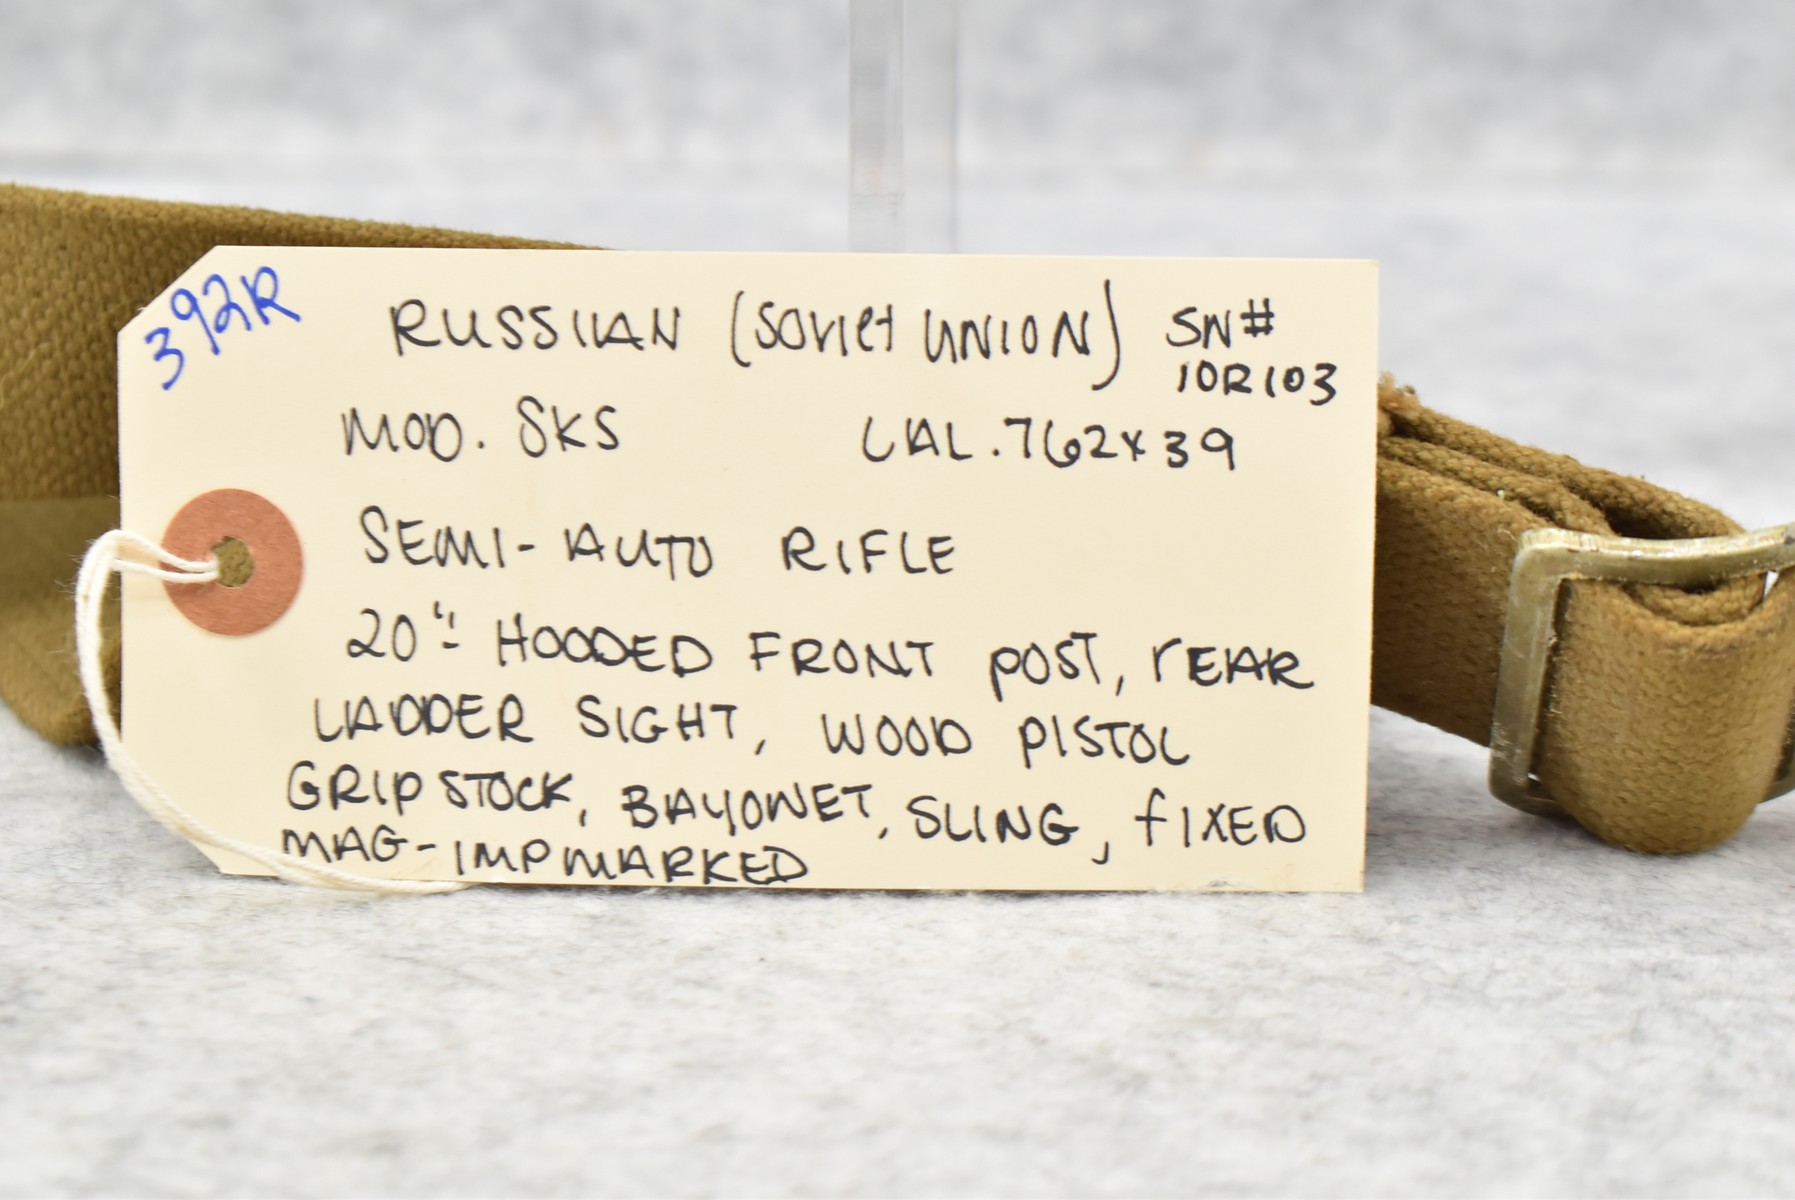 392R
RUSSIAN (SOVIET UNION) SN#
10R103
MOD. SKS CAL. 762x39
SEMI-AUTO RIFLE
20"- HOODED FRONT POST, REAR
LADDER SIGHT, WOOD PISTOL
GRIP STOCK, BAYONET, SLING, FIXED
MAG-IMP MARKED